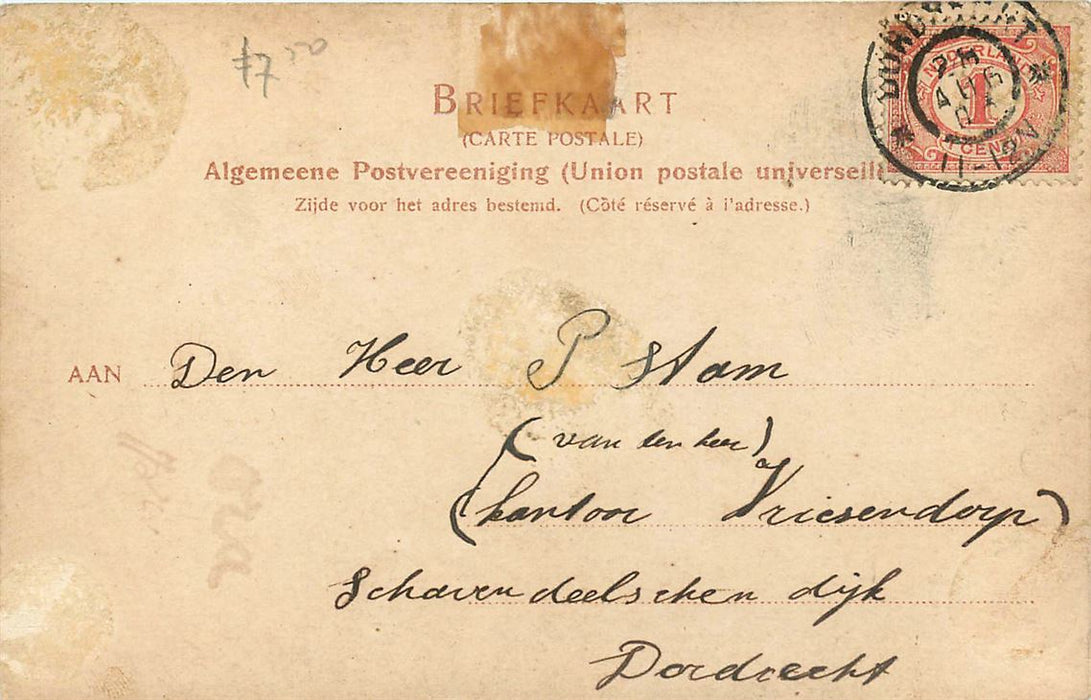 f7.50
BRIEFKAART
(CARTE POSTALE)
Algemeene Postvereeniging (Union postale universelle
Zijde voor het adres bestemd. (Côté réservé à l'adresse.)
DORDRECHT
AUG
11-12V
NEDERLAND
1
CENT
AAN Den Heer P Stam
(van den heer)
(kantoor Vriesendorp)
Schavendeelschen dijk
Dordrecht